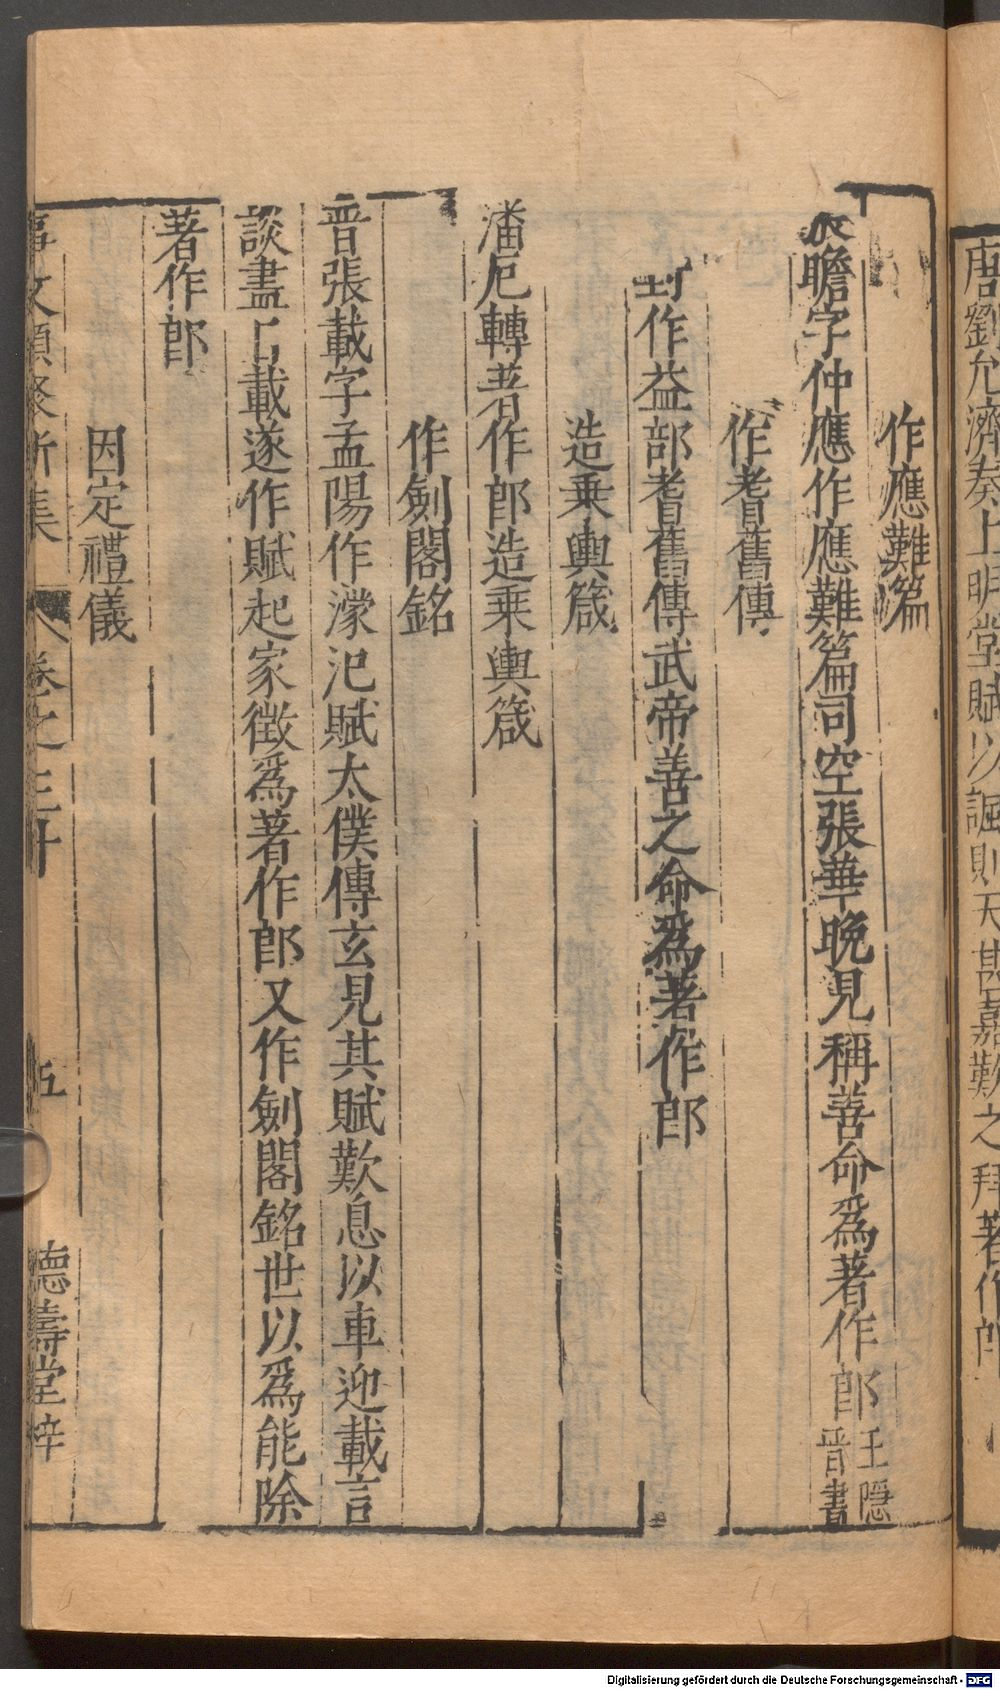 唐劉允濟奏上明堂賦以諷則天甚嘉歎之拜著作郎
作應難篇
張瞻字仲應作應難篇司空張華晚見稱善命爲著作郎王隱晉書
作耆舊傳
作益部耆舊傳武帝善之命爲著作郎
造乘輿箴
潘尼轉著作郎造乘輿箴
作劍閣銘
晉張載字孟陽作濛汜賦太僕傅玄見其賦歎息以車迎載言
談盡日載遂作賦起家徵爲著作郎又作劍閣銘世以爲能除
著作郎
因定禮儀
事文類聚新集 卷之三十 五 德壽堂梓
Digitalisierung gefördert durch die Deutsche Forschungsgemeinschaft - DFG